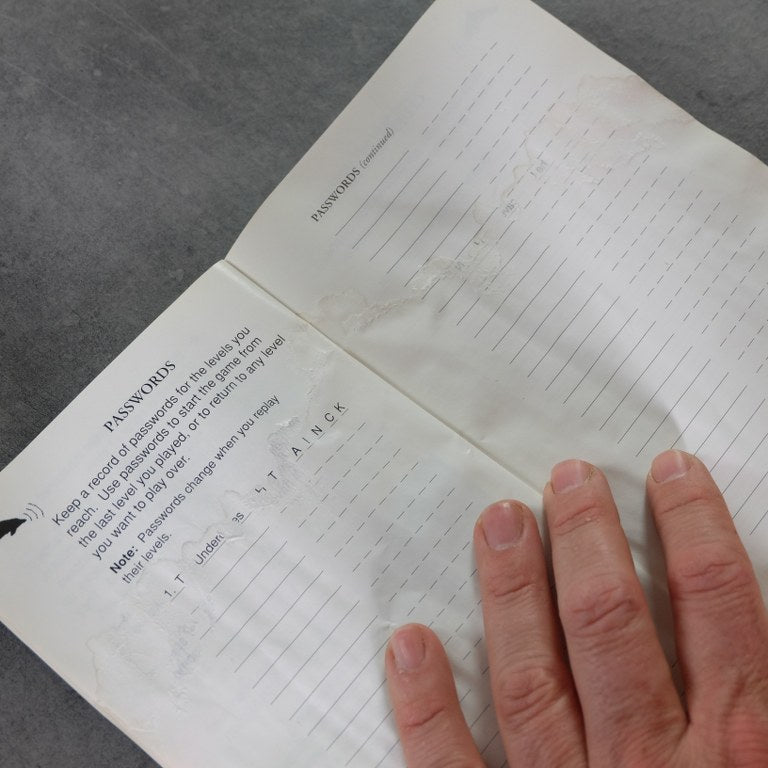 PASSWORDS
Keep a record of passwords for the levels you
reach. Use passwords to start the game from
the last level you played, or to return to any level
you want to play over.
Note: Passwords change when you replay
their levels.
1. T T A I N C K
PASSWORDS (continued)